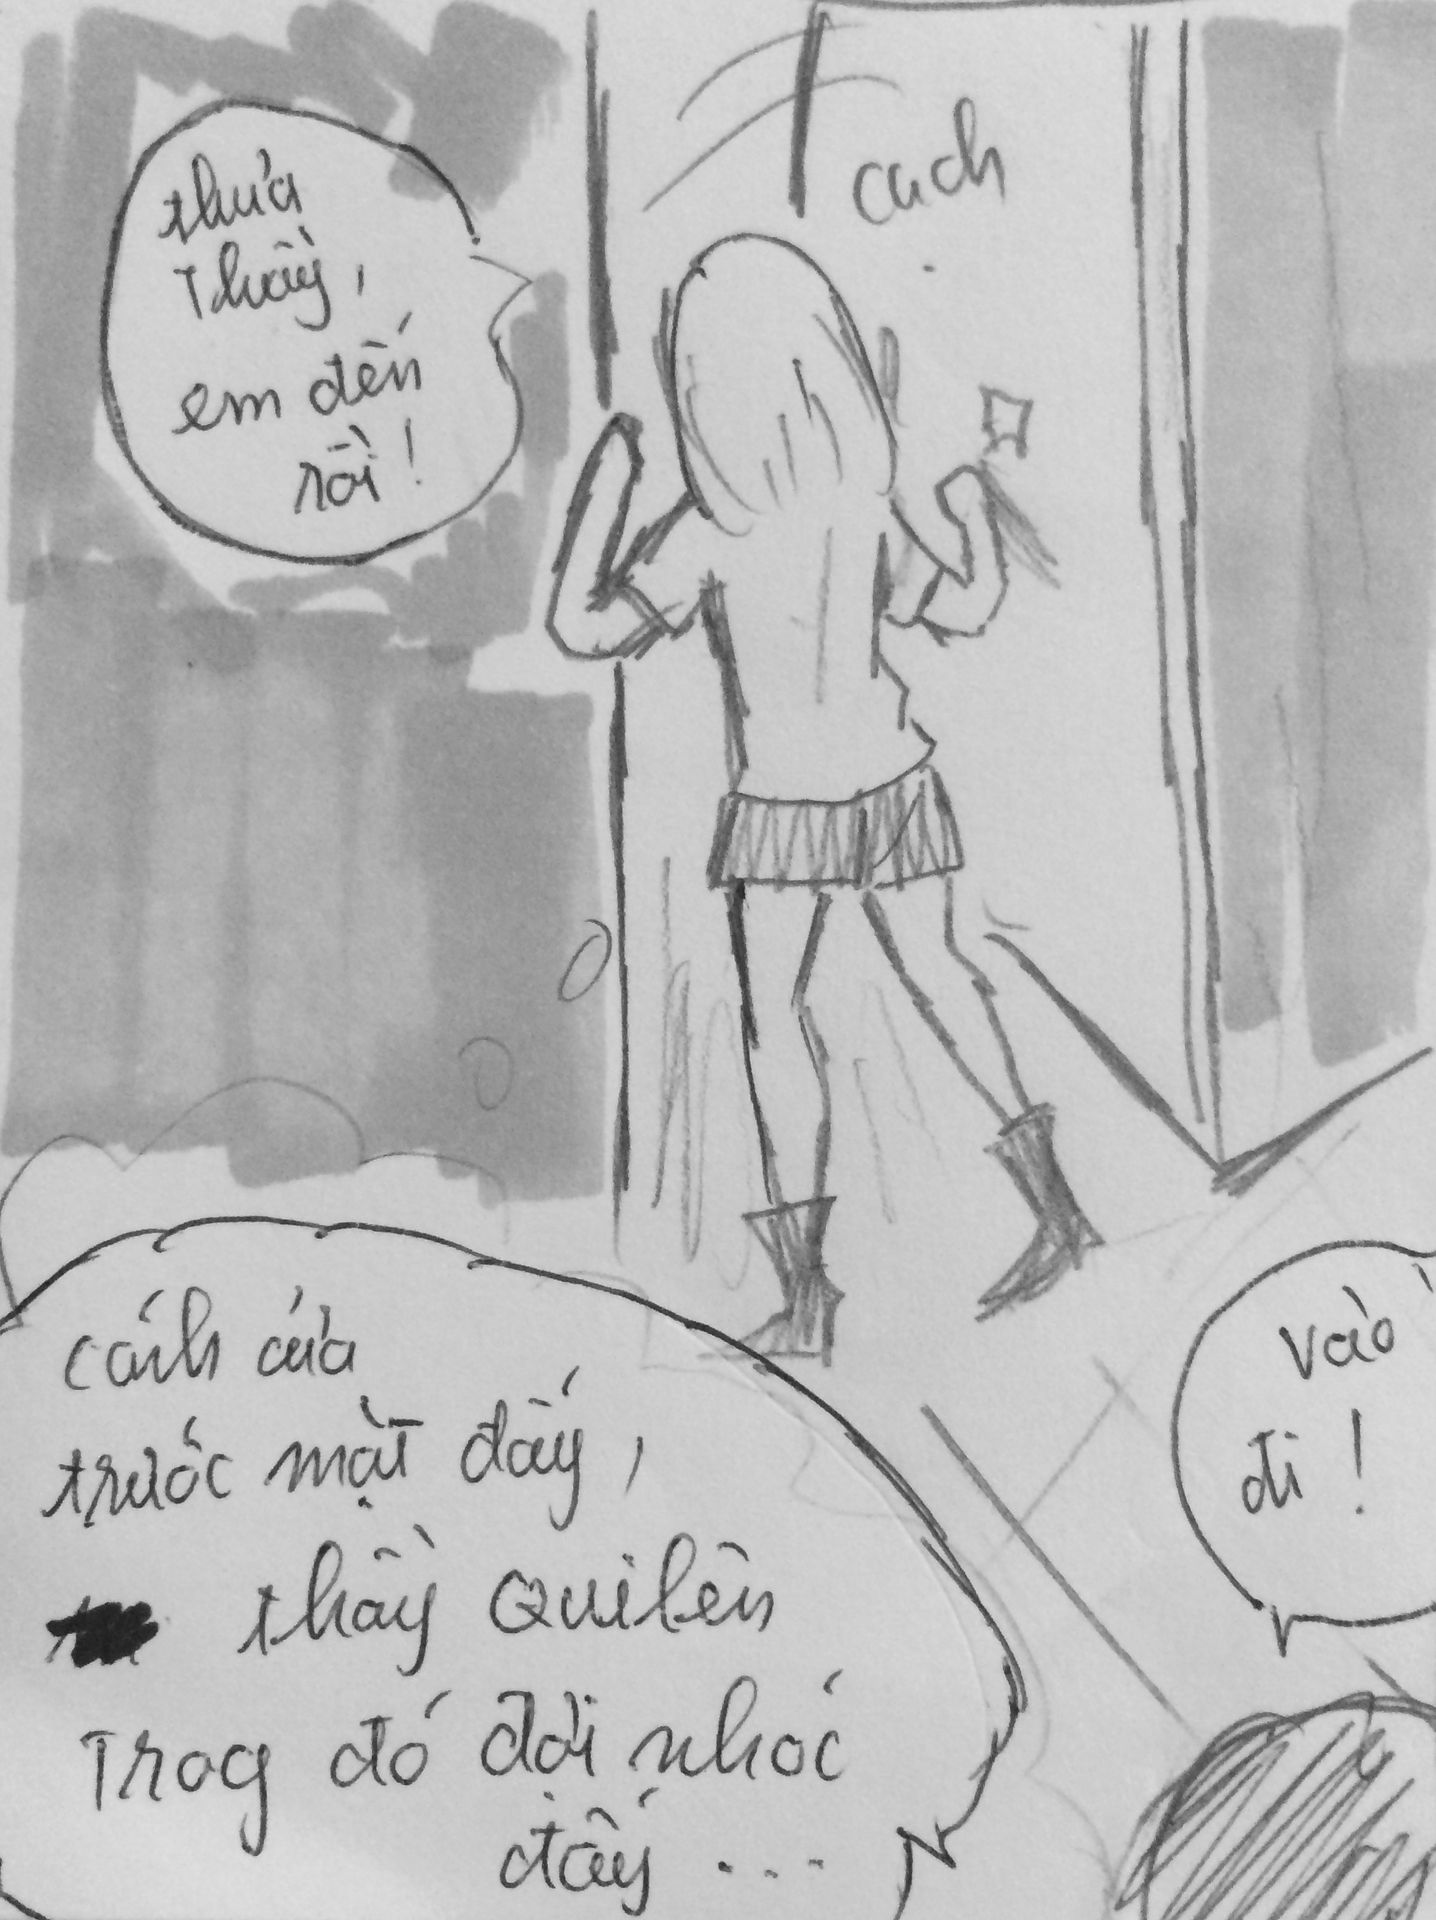 thưa
Thầy,
em đến
rồi!
cạch
cánh cửa
trước mặt đấy,
thầy Quilên
Trog đó đợi nhóc
đấy ...
Vào
đi!